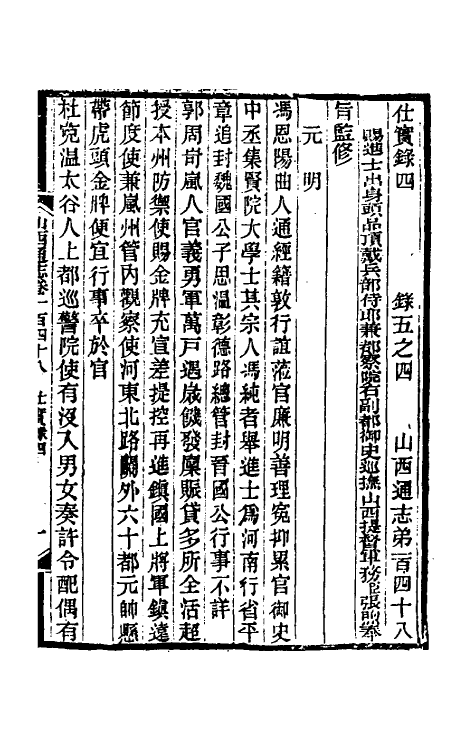 仕實錄四　錄五之四　山西通志第一百四十八
賜進士出身頭品頂戴兵部侍郎兼都察院右副都御史巡撫山西提督軍務臣張煦奉
旨監修
元　明
馮恩陽曲人通經籍敦行誼蒞官廉明善理冤抑累官御史
中丞集賢院大學士其宗人馮純者舉進士爲河南行省平
章追封魏國公子思溫彰德路總管封晉國公行事不詳
郭周岢嵐人官義勇軍萬戸遇歲饑發廩賑貸多所全活超
授本州防禦使賜金牌充宣差提控再進鎮國上將軍鎮遠
節度使兼嵐州管內觀察使河東北路關外六十都元帥懸
帶虎頭金牌便宜行事卒於官
杜克溫太谷人上都巡警院使有沒入男女奏許令配偶有
山西通志卷一百四十八　仕實錄四　一